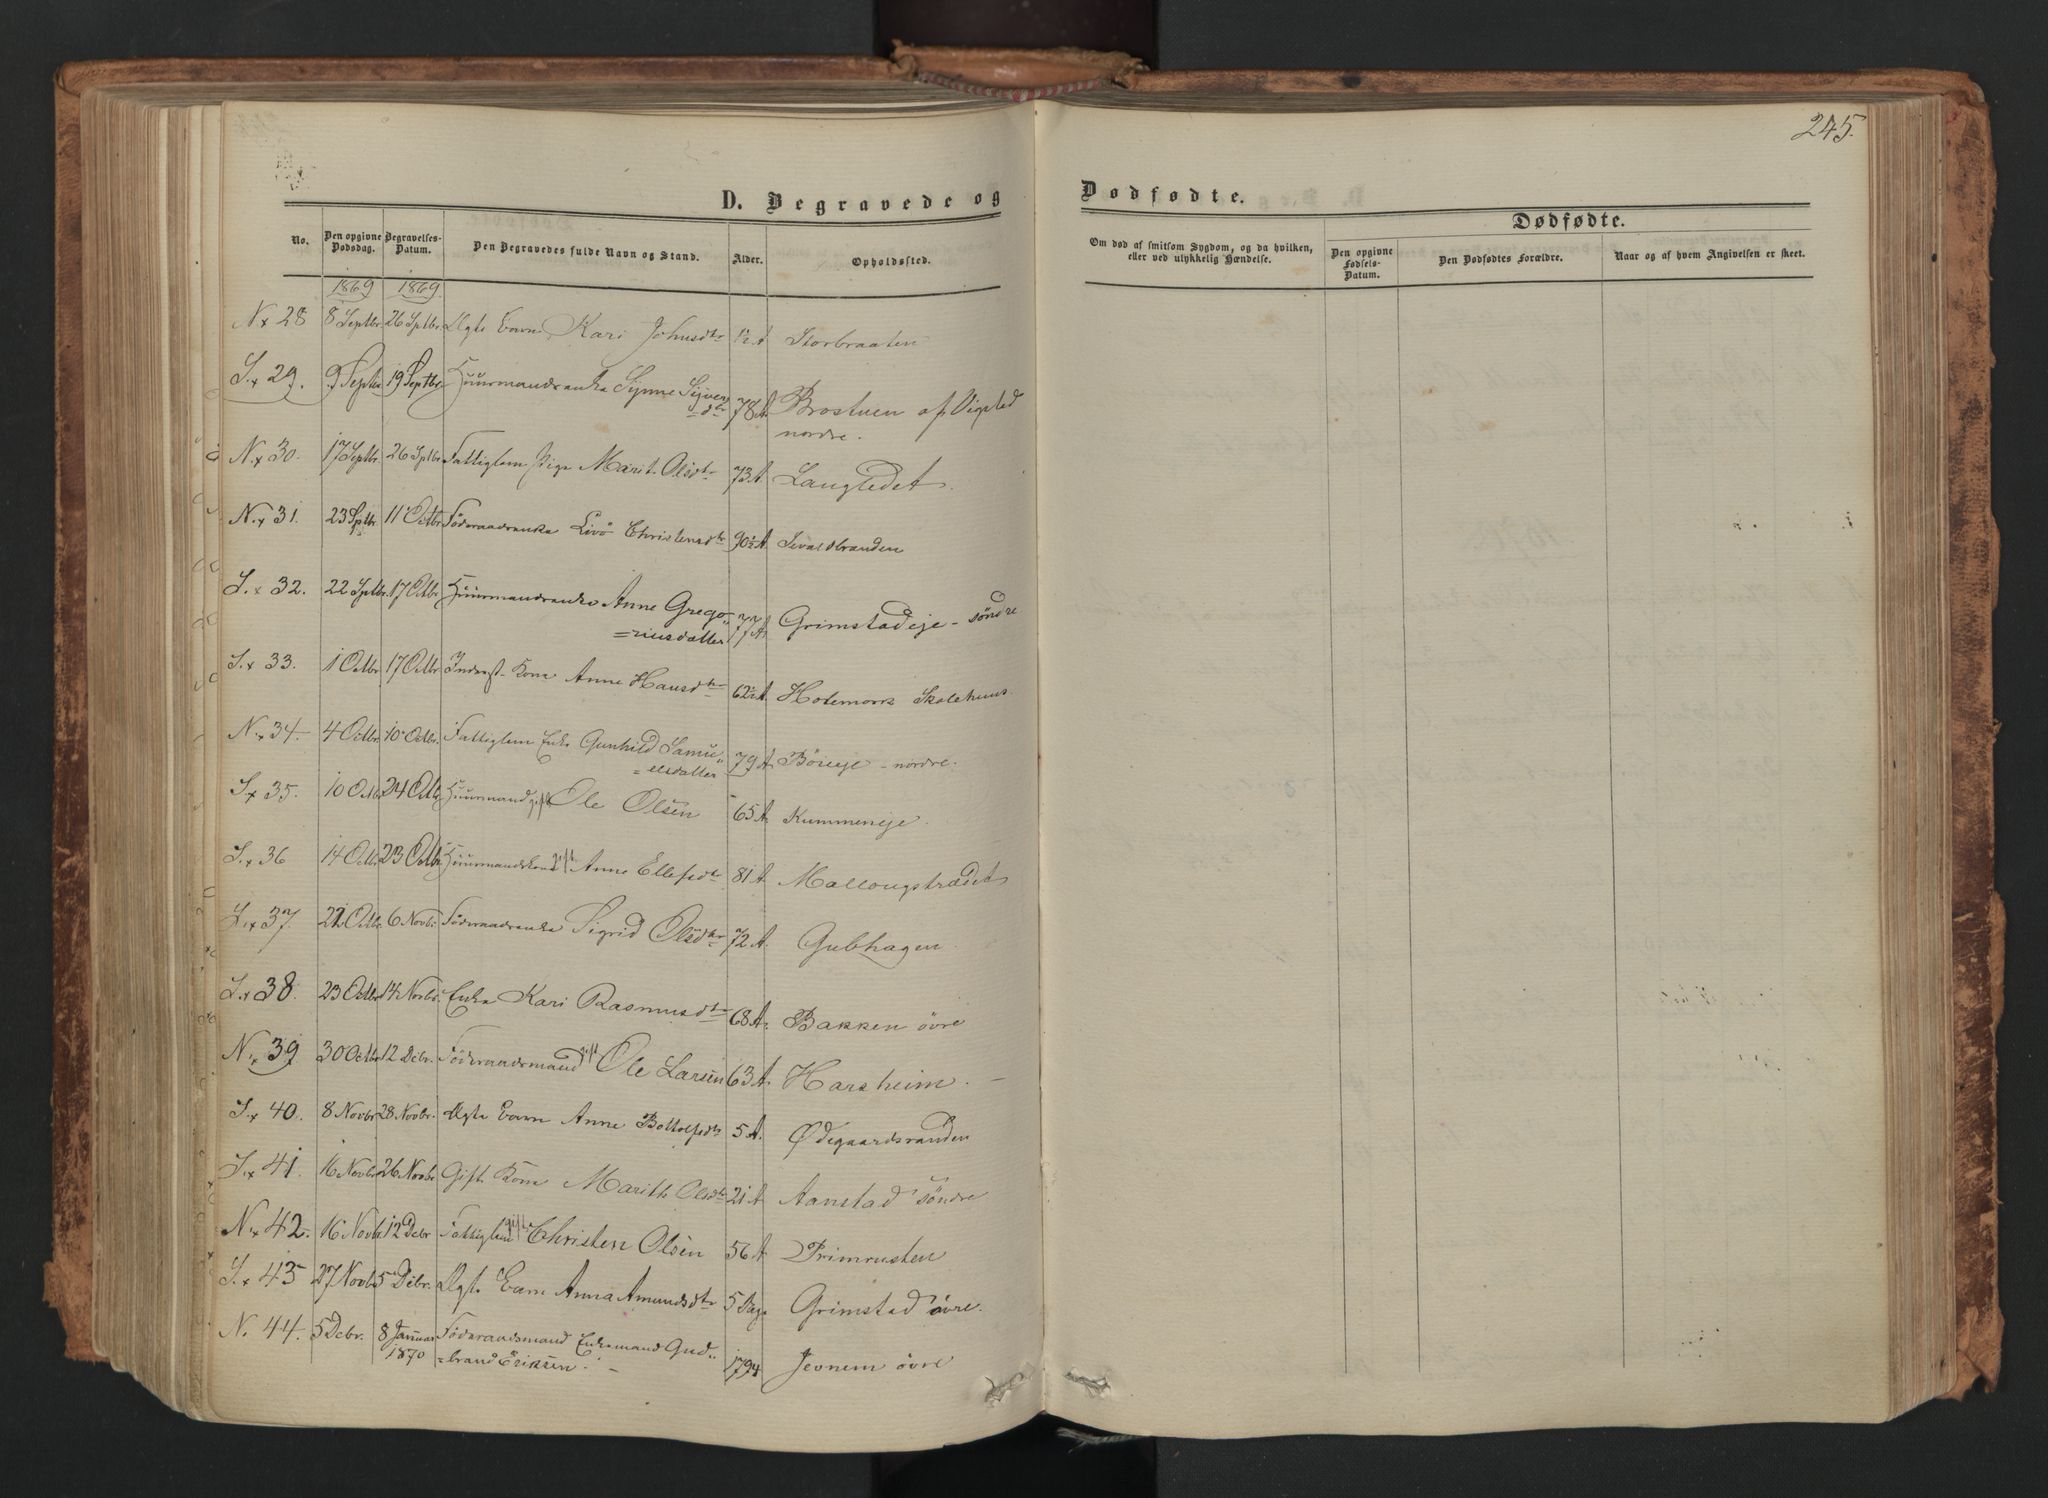 245.
D. Begravede og
Dødfødte.
Dødfødte.
No.
Den opgivne Dødsdag.
Begravelses-Datum.
Den Begravedes fulde Navn og Stand.
Alder.
Opholdssted.
Om død af smitsom Sygdom, og da hvilken, eller ved ulykkelig Hændelse.
Den opgivne Fødsels-Datum.
Den Dødfødtes Forældre.
Naar og af hvem Angivelsen er skeet.
1869 1869.
N.x 28 8 Septbr. 26 Sptbr. Ugte Barn Kari Johnsdtr 1½ A Storbraaten
S.x 29. 9 Septbr 19 Septbr. Huusmandsenke Synne Syver
=dtr 78 A. Brostuen af Vigstad
nordre.
N.x 30. 17 Septbr. 26 Sptbr. Fattiglem Pige Marit Olsdtr 73 A. Langledet.
N.x 31. 23 Sptbr. 11 Octbr Föderaadsenke Livö Christensdtr 90½ A. Sevaldbranden
S.x 32. 22 Sptbr. 17 Octbr Huusmandsenke Anne Grego-
=riusdatter 77 A. Grimstadeje - söndre
S.x 33. 1 Octbr 17 Octbr Inderst-Kone Anne Hansdtr 62½ A. Hotemork Skolehuus.
N.x 34. 4 Octbr. 10 Octbr. Fattiglem Enke Gunhild Samu-
=elsdatter 79 A. Böeeje - nordre.
S.x 35. 10 Octbr 24 Octbr. Huusmand gift Ole Olsen 65 A. Kummeneje.
S.x 36 14 Octbr. 23 Octbr. Huusmandskone gift Anne Ellefsdtr 81 A. Mallongstrædet
S.x 37. 21 Octbr. 6 Novbr. Föderaadsenke Sigrid Olsdtr 72 A. Gubhagen.
S.x 38. 23 Octbr 14 Novbr. Enke Kari Rasmusdtr 68 A. Bakken övre
N.x 39 30 Octbr 12 Debr. Föderaadsmand gift Ole Larsen 63 A. Harsheim. -
S.x 40. 8 Novbr 28 Novbr. Ægte Barn Anne Bottolfsdtr 5 A. Ødegaardsranden
S.x 41. 16 Novbr 26 Novbr Gift Kone Marith Olsdtr 21 A. Aanstad söndre
N.x 42. 16 Novbr. 12 Debr Fattiglem gift Christen Olsen 56 A. Primrusten
S.x 43 27 Novbr 5 Debr. Ægte Barn Anna Amundsdtr 5 Dage Grimstad övre.
N. 44. 5 Debr. 8 Januar Föderaadsmand Enkemand Gud-
1870 =brand Eriksen. - 1794 Jevnem övre